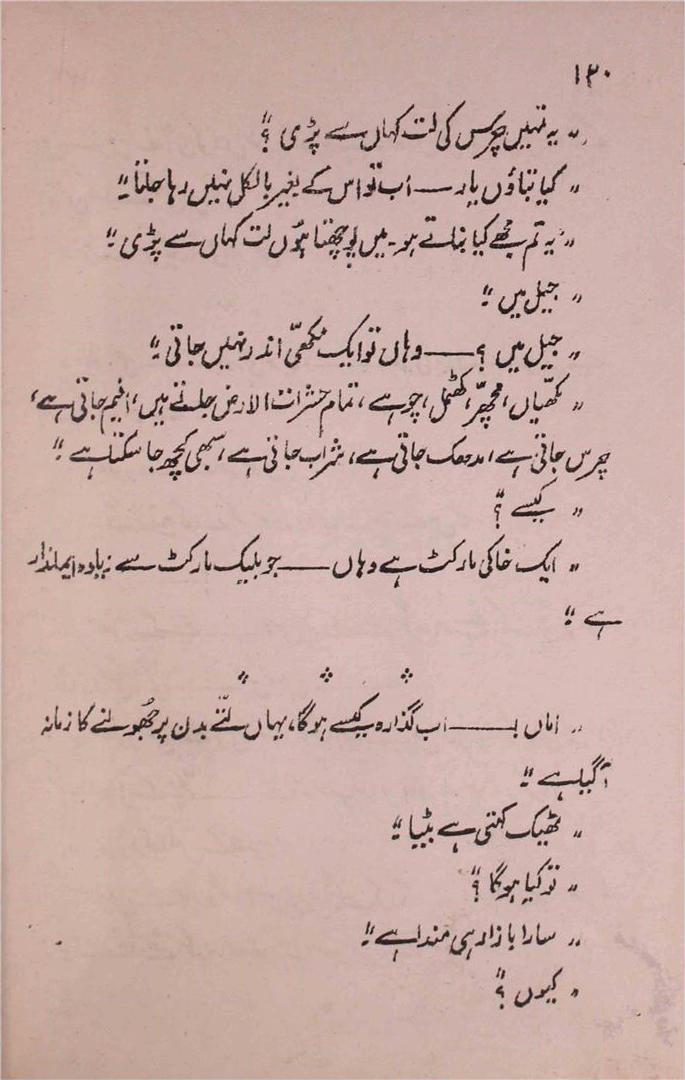 ۱۳۰
"یہ تمہیں چرس کی لت کہاں سے پڑی؟"
"کیا بتاؤں یار —— اب تو اس کے بغیر بالکل نہیں رہا جاتا"
"یہ تم مجھے کیا بتاتے ہو۔ میں پوچھتا ہوں لت کہاں سے پڑی"
"جیل میں"
"جیل میں؟ —— وہاں تو ایک مکھّی اندر نہیں جاتی"
"مکھّیاں، مچھّر، کھٹمل، چوہے، تمام حشرات الارض جاتے ہیں، افیم جاتی ہے،
چرس جاتی ہے، مدھک جاتی ہے، شراب جاتی ہے، سبھی کچھ جا سکتا ہے"
"کیسے؟"
"ایک خاکی مارکٹ ہے وہاں —— جو بلیک مارکٹ سے زیادہ ایماندار
ہے"
"اماں ب —— اب گذارہ کیسے ہوگا، یہاں لتّے بدن پر جھُولنے کا زمانہ
آ گیا ہے"
"ٹھیک کہتی ہے بٹیا"
"تو کیا ہوگا؟"
"سارا بازار ہی مندا ہے"
"کیوں؟"